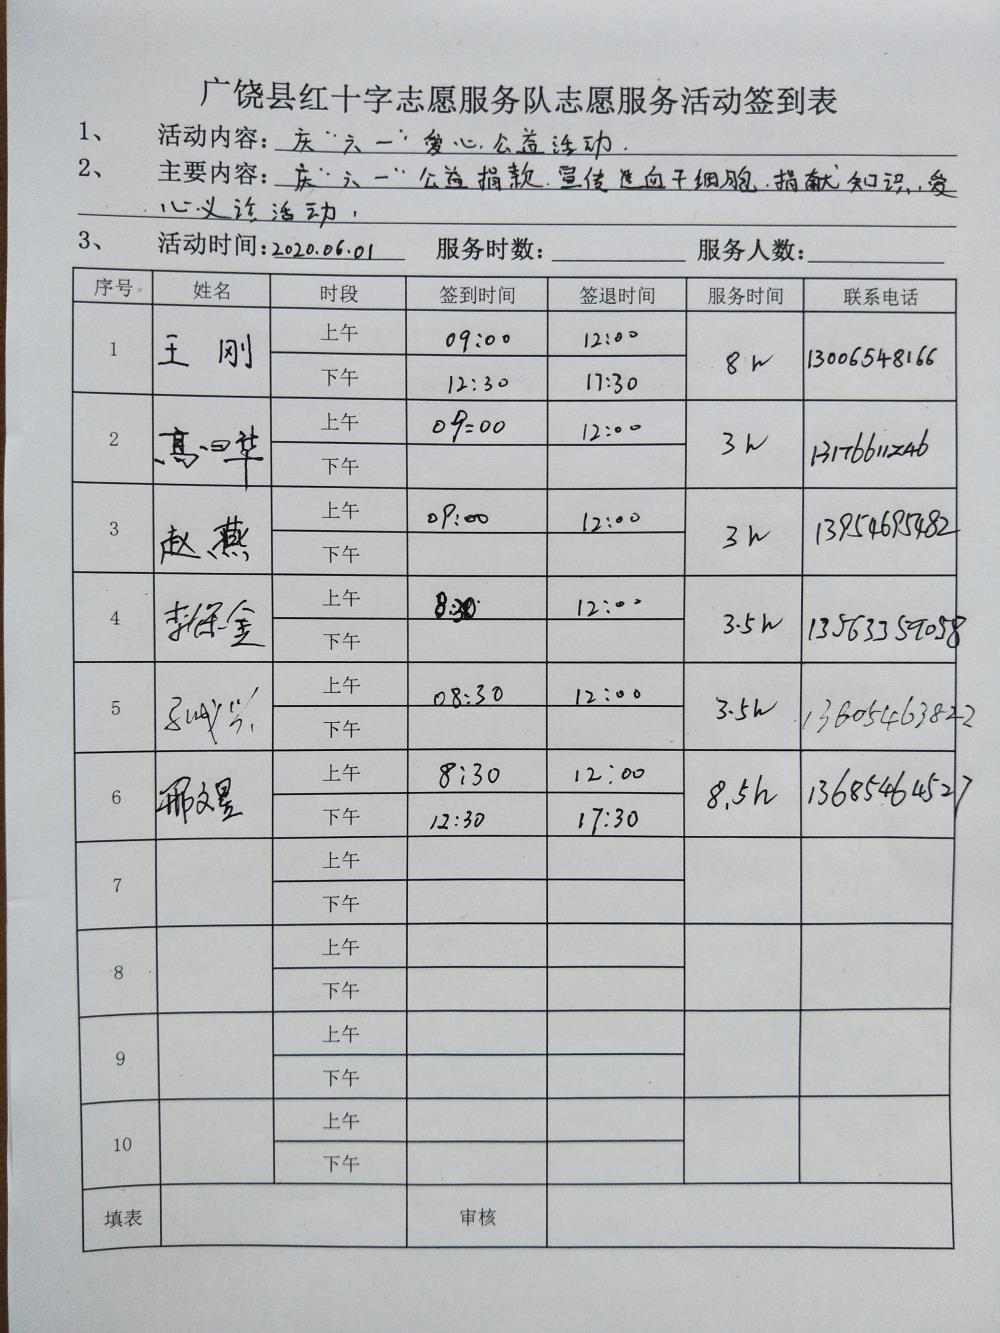 广饶县红十字志愿服务队志愿服务活动签到表
1、 活动内容: 庆"六一"爱心公益活动.
2、 主要内容: 庆"六一"公益捐款.宣传造血干细胞.捐献知识、爱
心义诊活动,
3、 活动时间: 2020.06.01 服务时数: 服务人数:
序号 姓名 时段 签到时间 签退时间 服务时间 联系电话
1 王刚 上午 09:00 12:00 8h 13006548166
下午 12:30 17:30
2 高 华 上午 09:00 12:00 3h 13176611246
下午
3 赵燕 上午 09:00 12:00 3h 13954695482
下午
4 李保金 上午 8:30 12:00 3.5h 13563359058
下午
5 上午 08:30 12:00 3.5h 13605463822
下午
6 邢文昱 上午 8:30 12:00 8.5h 13685464527
下午 12:30 17:30
7 上午
下午
8 上午
下午
9 上午
下午
10 上午
下午
填表 审核